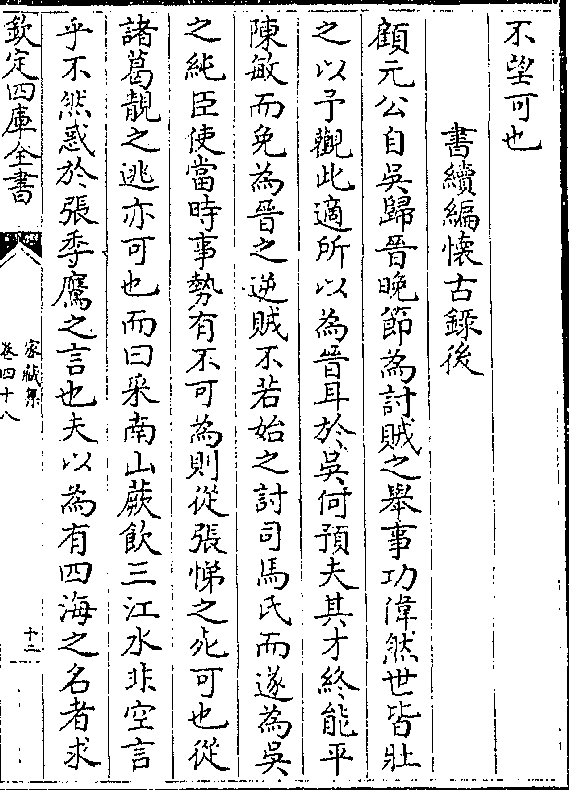 不望可也
書續編懷古錄後
顧元公自吳歸晉晚節為討賊之舉事功偉然世皆壯
之以予觀此適所以為晉耳於吳何預夫其才終能平
陳敏而免為晉之逆賊不若始之討司馬氏而遂為吳
之純臣使當時事勢有不可為則從張悌之死可也從
諸葛靚之逃亦可也而曰采南山蕨飲三江水非空言
乎不然惑於張季鷹之言也夫以為有四海之名者求
欽定四庫全書
家藏集
卷四十八
十二